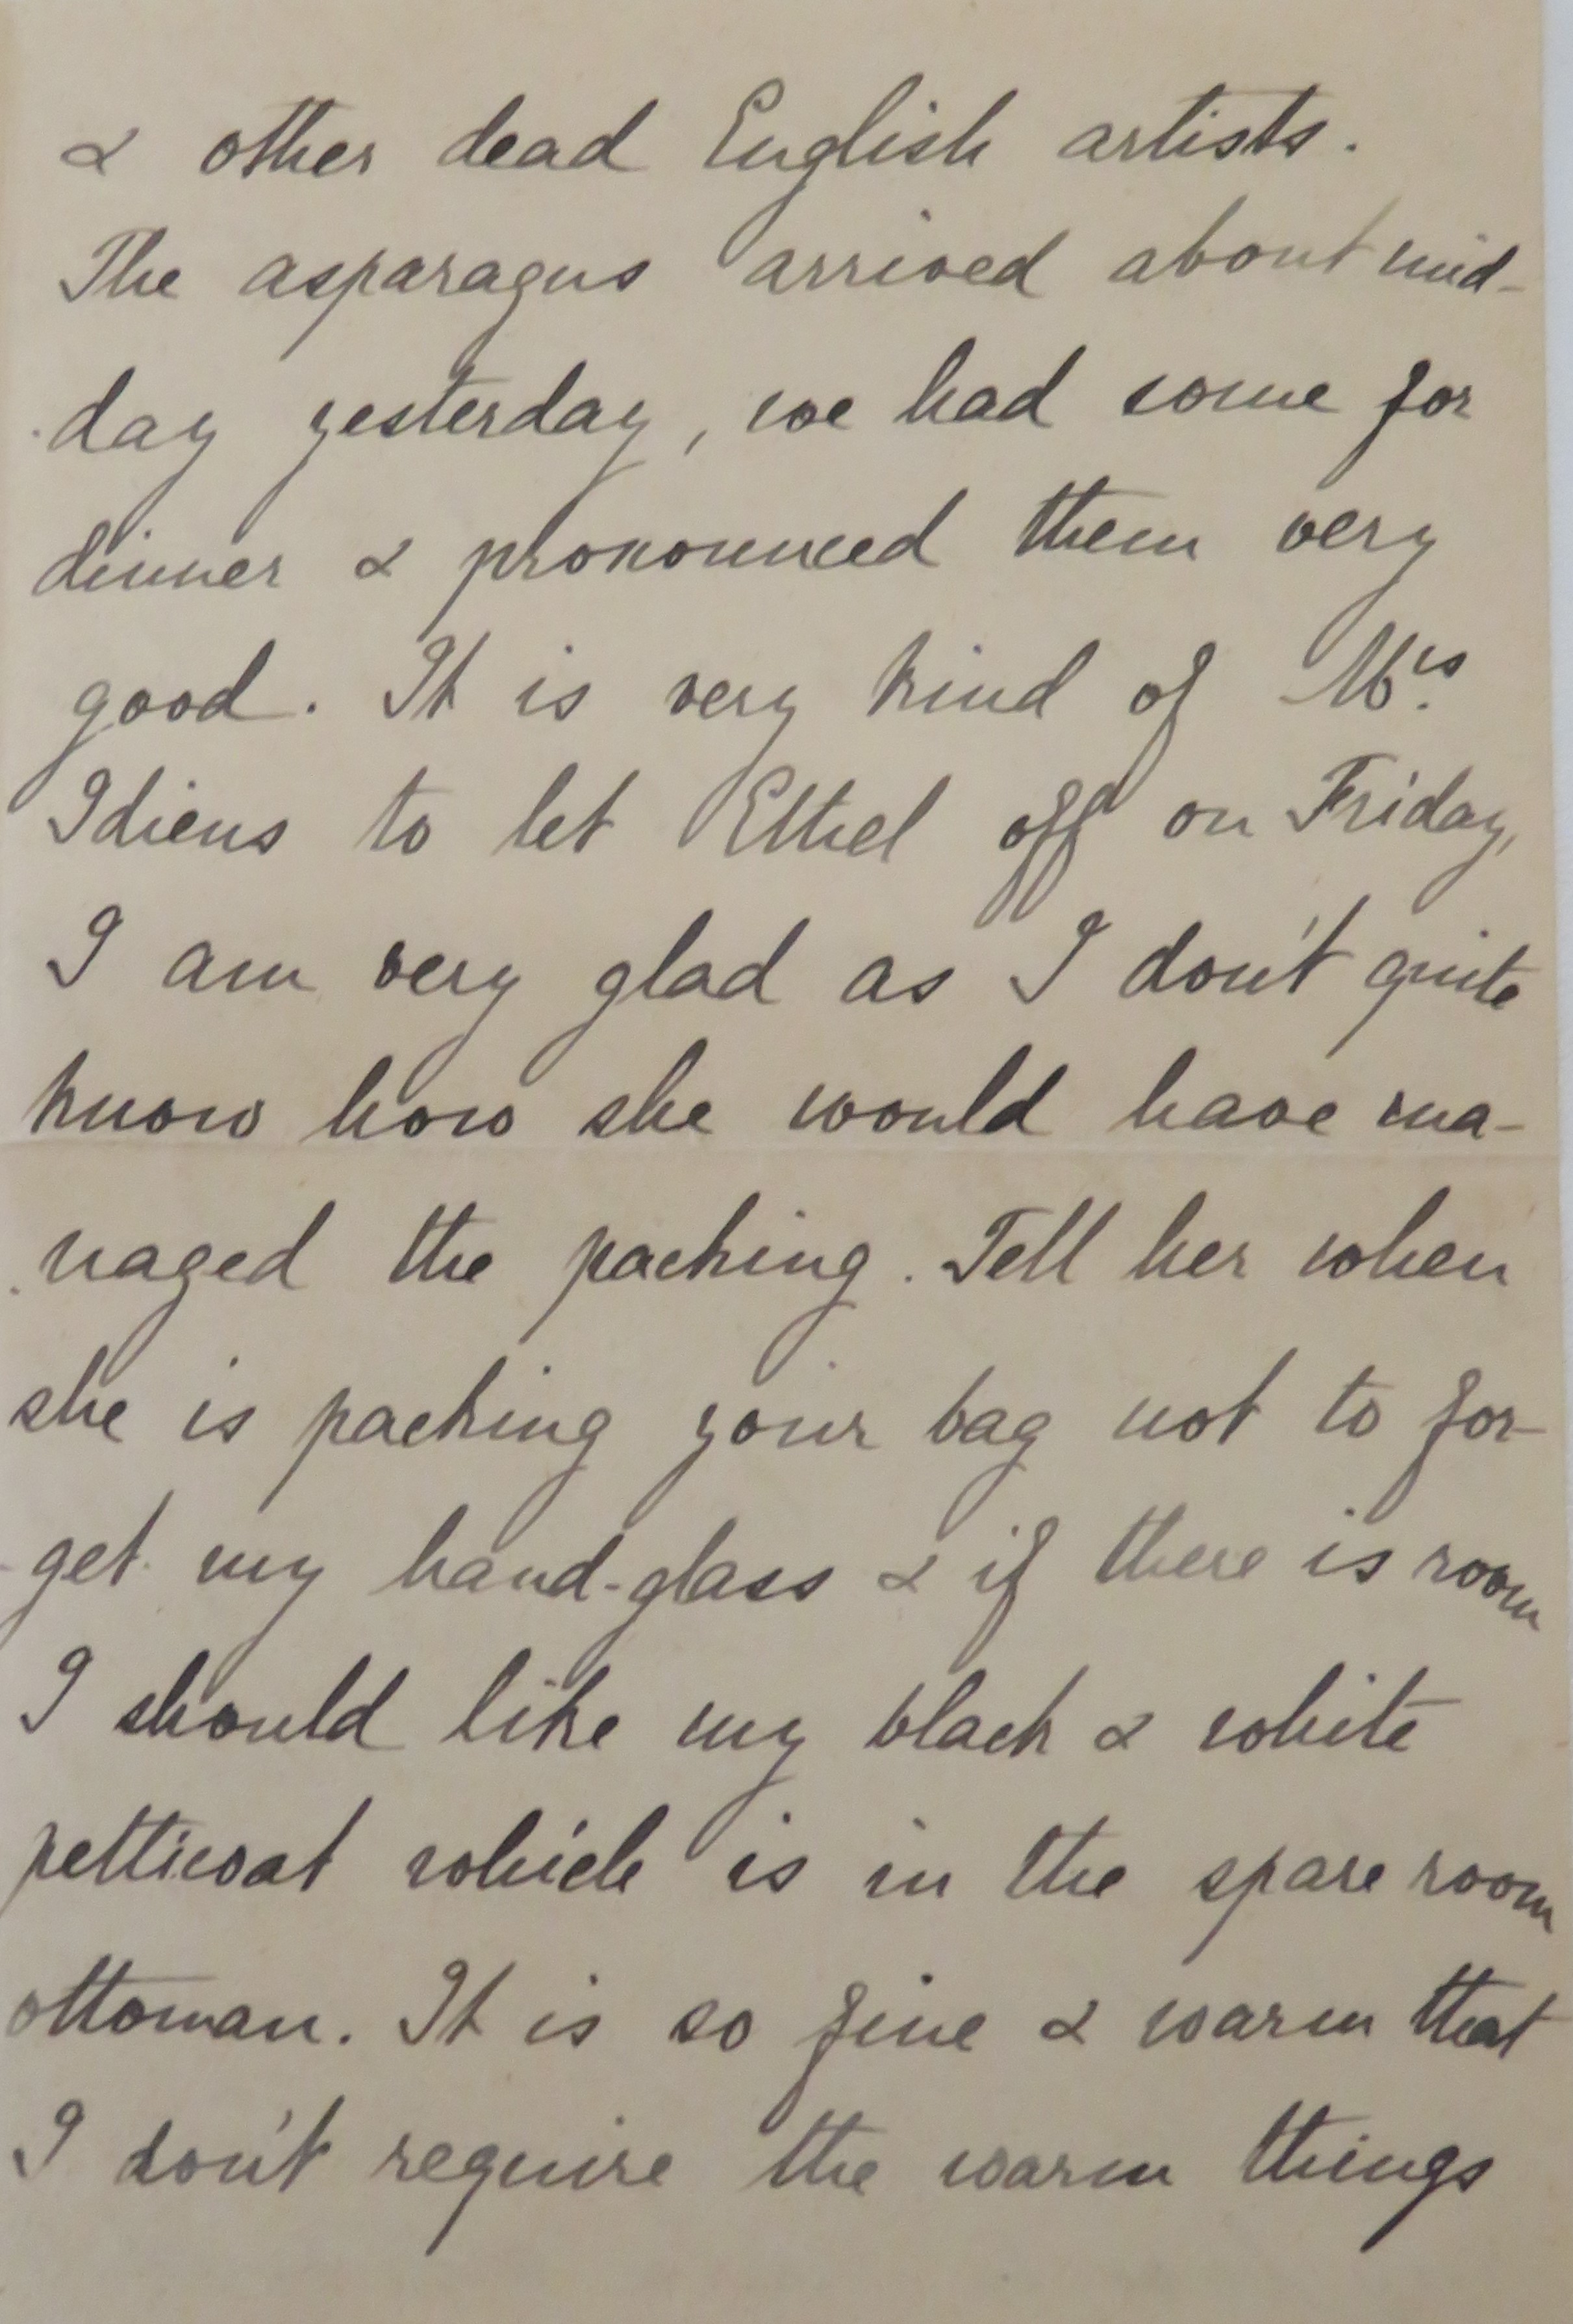 & other dead English artists.
The asparagus arrived about mid-
day yesterday, we had some for
dinner & pronounced them very
good. It is very kind of Mrs.
Idiens to let Ethel off on Friday,
I am very glad as I don't quite
know how she would have ma-
naged the packing. Tell her when
she is packing your bag not to for-
get my hand-glass & if there is room
I should like my black & white
petticoat which is in the spare room
ottoman. It is so fine & warm that
I don't require the warm things